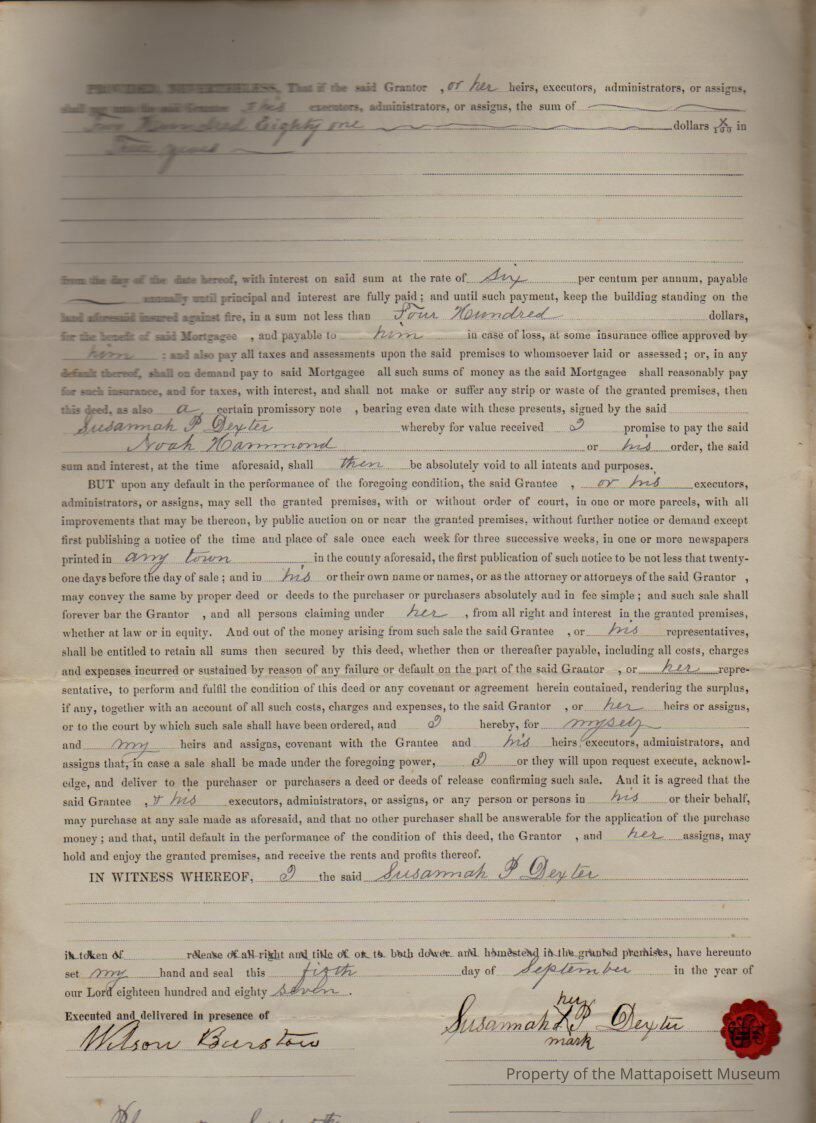 PROVIDED, NEVERTHELESS, That if the said Grantor , or her heirs, executors, administrators, or assigns,
shall pay unto the said Grantee & his executors, administrators, or assigns, the sum of
Hundred Eighty one dollars X/100 in
years
from the day of the date hereof, with interest on said sum at the rate of six per centum per annum, payable
annually until principal and interest are fully paid; and until such payment, keep the building standing on the
land aforesaid insured against fire, in a sum not less than Four Hundred dollars,
for the benefit of said Mortgagee , and payable to him in case of loss, at some insurance office approved by
him ; and also pay all taxes and assessments upon the said premises to whomsoever laid or assessed; or, in any
default thereof, shall on demand pay to said Mortgagee all such sums of money as the said Mortgagee shall reasonably pay
for such insurance, and for taxes, with interest, and shall not make or suffer any strip or waste of the granted premises, then
this deed, as also a certain promissory note , bearing even date with these presents, signed by the said
Susannah P Dexter whereby for value received I promise to pay the said
Noah Hammond or his order, the said
sum and interest, at the time aforesaid, shall then be absolutely void to all intents and purposes.
BUT upon any default in the performance of the foregoing condition, the said Grantee , or his executors,
administrators, or assigns, may sell the granted premises, with or without order of court, in one or more parcels, with all
improvements that may be thereon, by public auction on or near the granted premises, without further notice or demand except
first publishing a notice of the time and place of sale once each week for three successive weeks, in one or more newspapers
printed in any town in the county aforesaid, the first publication of such notice to be not less that twenty-
one days before the day of sale; and in his or their own name or names, or as the attorney or attorneys of the said Grantor ,
may convey the same by proper deed or deeds to the purchaser or purchasers absolutely and in fee simple; and such sale shall
forever bar the Grantor , and all persons claiming under her , from all right and interest in the granted premises,
whether at law or in equity. And out of the money arising from such sale the said Grantee , or his representatives,
shall be entitled to retain all sums then secured by this deed, whether then or thereafter payable, including all costs, charges
and expenses incurred or sustained by reason of any failure or default on the part of the said Grantor , or her repre-
sentative, to perform and fulfil the condition of this deed or any covenant or agreement herein contained, rendering the surplus,
if any, together with an account of all such costs, charges and expenses, to the said Grantor , or her heirs or assigns,
or to the court by which such sale shall have been ordered, and I hereby, for myself
and my heirs and assigns, covenant with the Grantee and his heirs, executors, administrators, and
assigns that, in case a sale shall be made under the foregoing power, I or they will upon request execute, acknowl-
edge, and deliver to the purchaser or purchasers a deed or deeds of release confirming such sale. And it is agreed that the
said Grantee , & his executors, administrators, or assigns, or any person or persons in his or their behalf,
may purchase at any sale made as aforesaid, and that no other purchaser shall be answerable for the application of the purchase
money; and that, until default in the performance of the condition of this deed, the Grantor , and her assigns, may
hold and enjoy the granted premises, and receive the rents and profits thereof.
IN WITNESS WHEREOF, I the said Susannah P Dexter
in token of release of all right and title of or to both dower and homestead in the granted premises, have hereunto
set my hand and seal this day of September in the year of
our Lord eighteen hundred and eighty seven.
Executed and delivered in presence of
her
Wilson Barstow Susannah X P Dexter
mark
Property of the Mattapoisett Museum